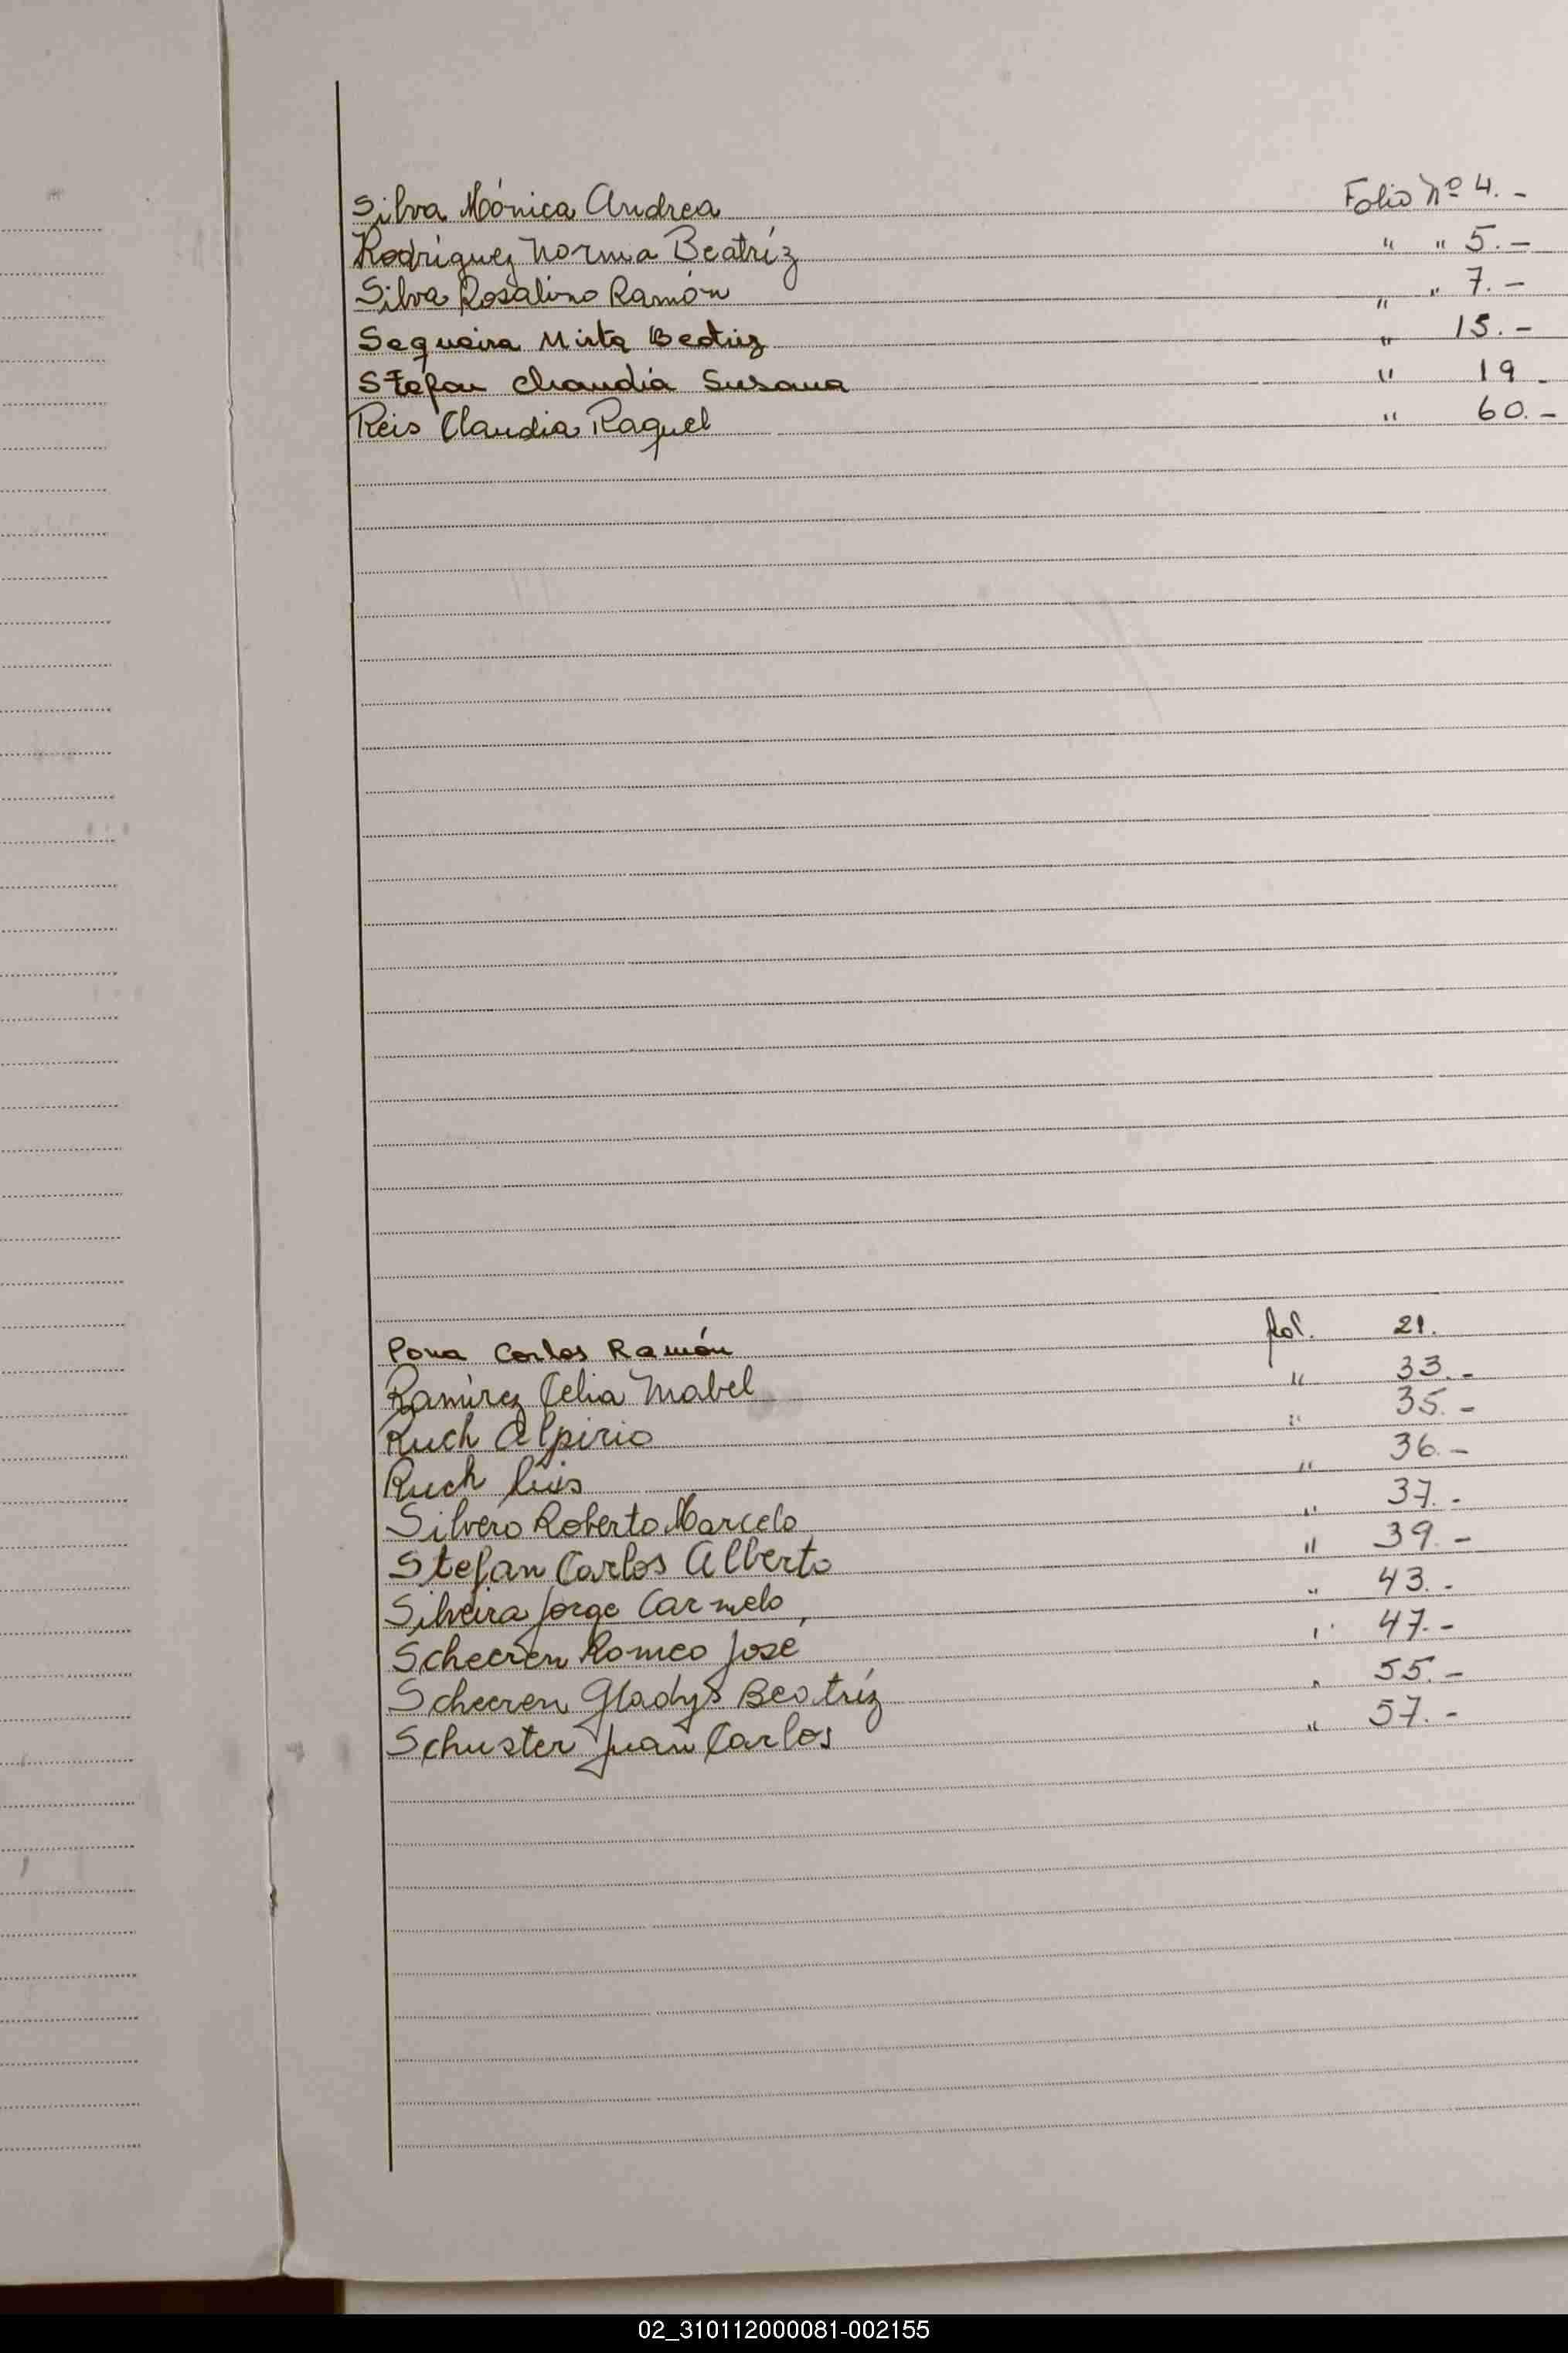 Silva Mónica Andrea Folio Nº 4.-
Rodriguez Norma Beatríz " " 5.-
Silva Rosalino Ramón " " 7.-
Sequeira Mirta Beatriz " 15.-
Stefan Claudia Susana " 19.-
Reis Claudia Raquel " 60.-
Carlos Ramón fol. 21.
Ramírez Celia Mabel " 33.-
Ruch Alpirio " 35.-
Ruch Luis " 36.-
Silvero Roberto Marcelo " 37.-
Stefan Carlos Alberto " 39.-
Silveira Jorge Carmelo " 43.-
Scheeren Romeo José " 47.-
Scheeren Gladys Beatríz " 55.-
Schuster Juan Carlos " 57.-
02_310112000081-002155